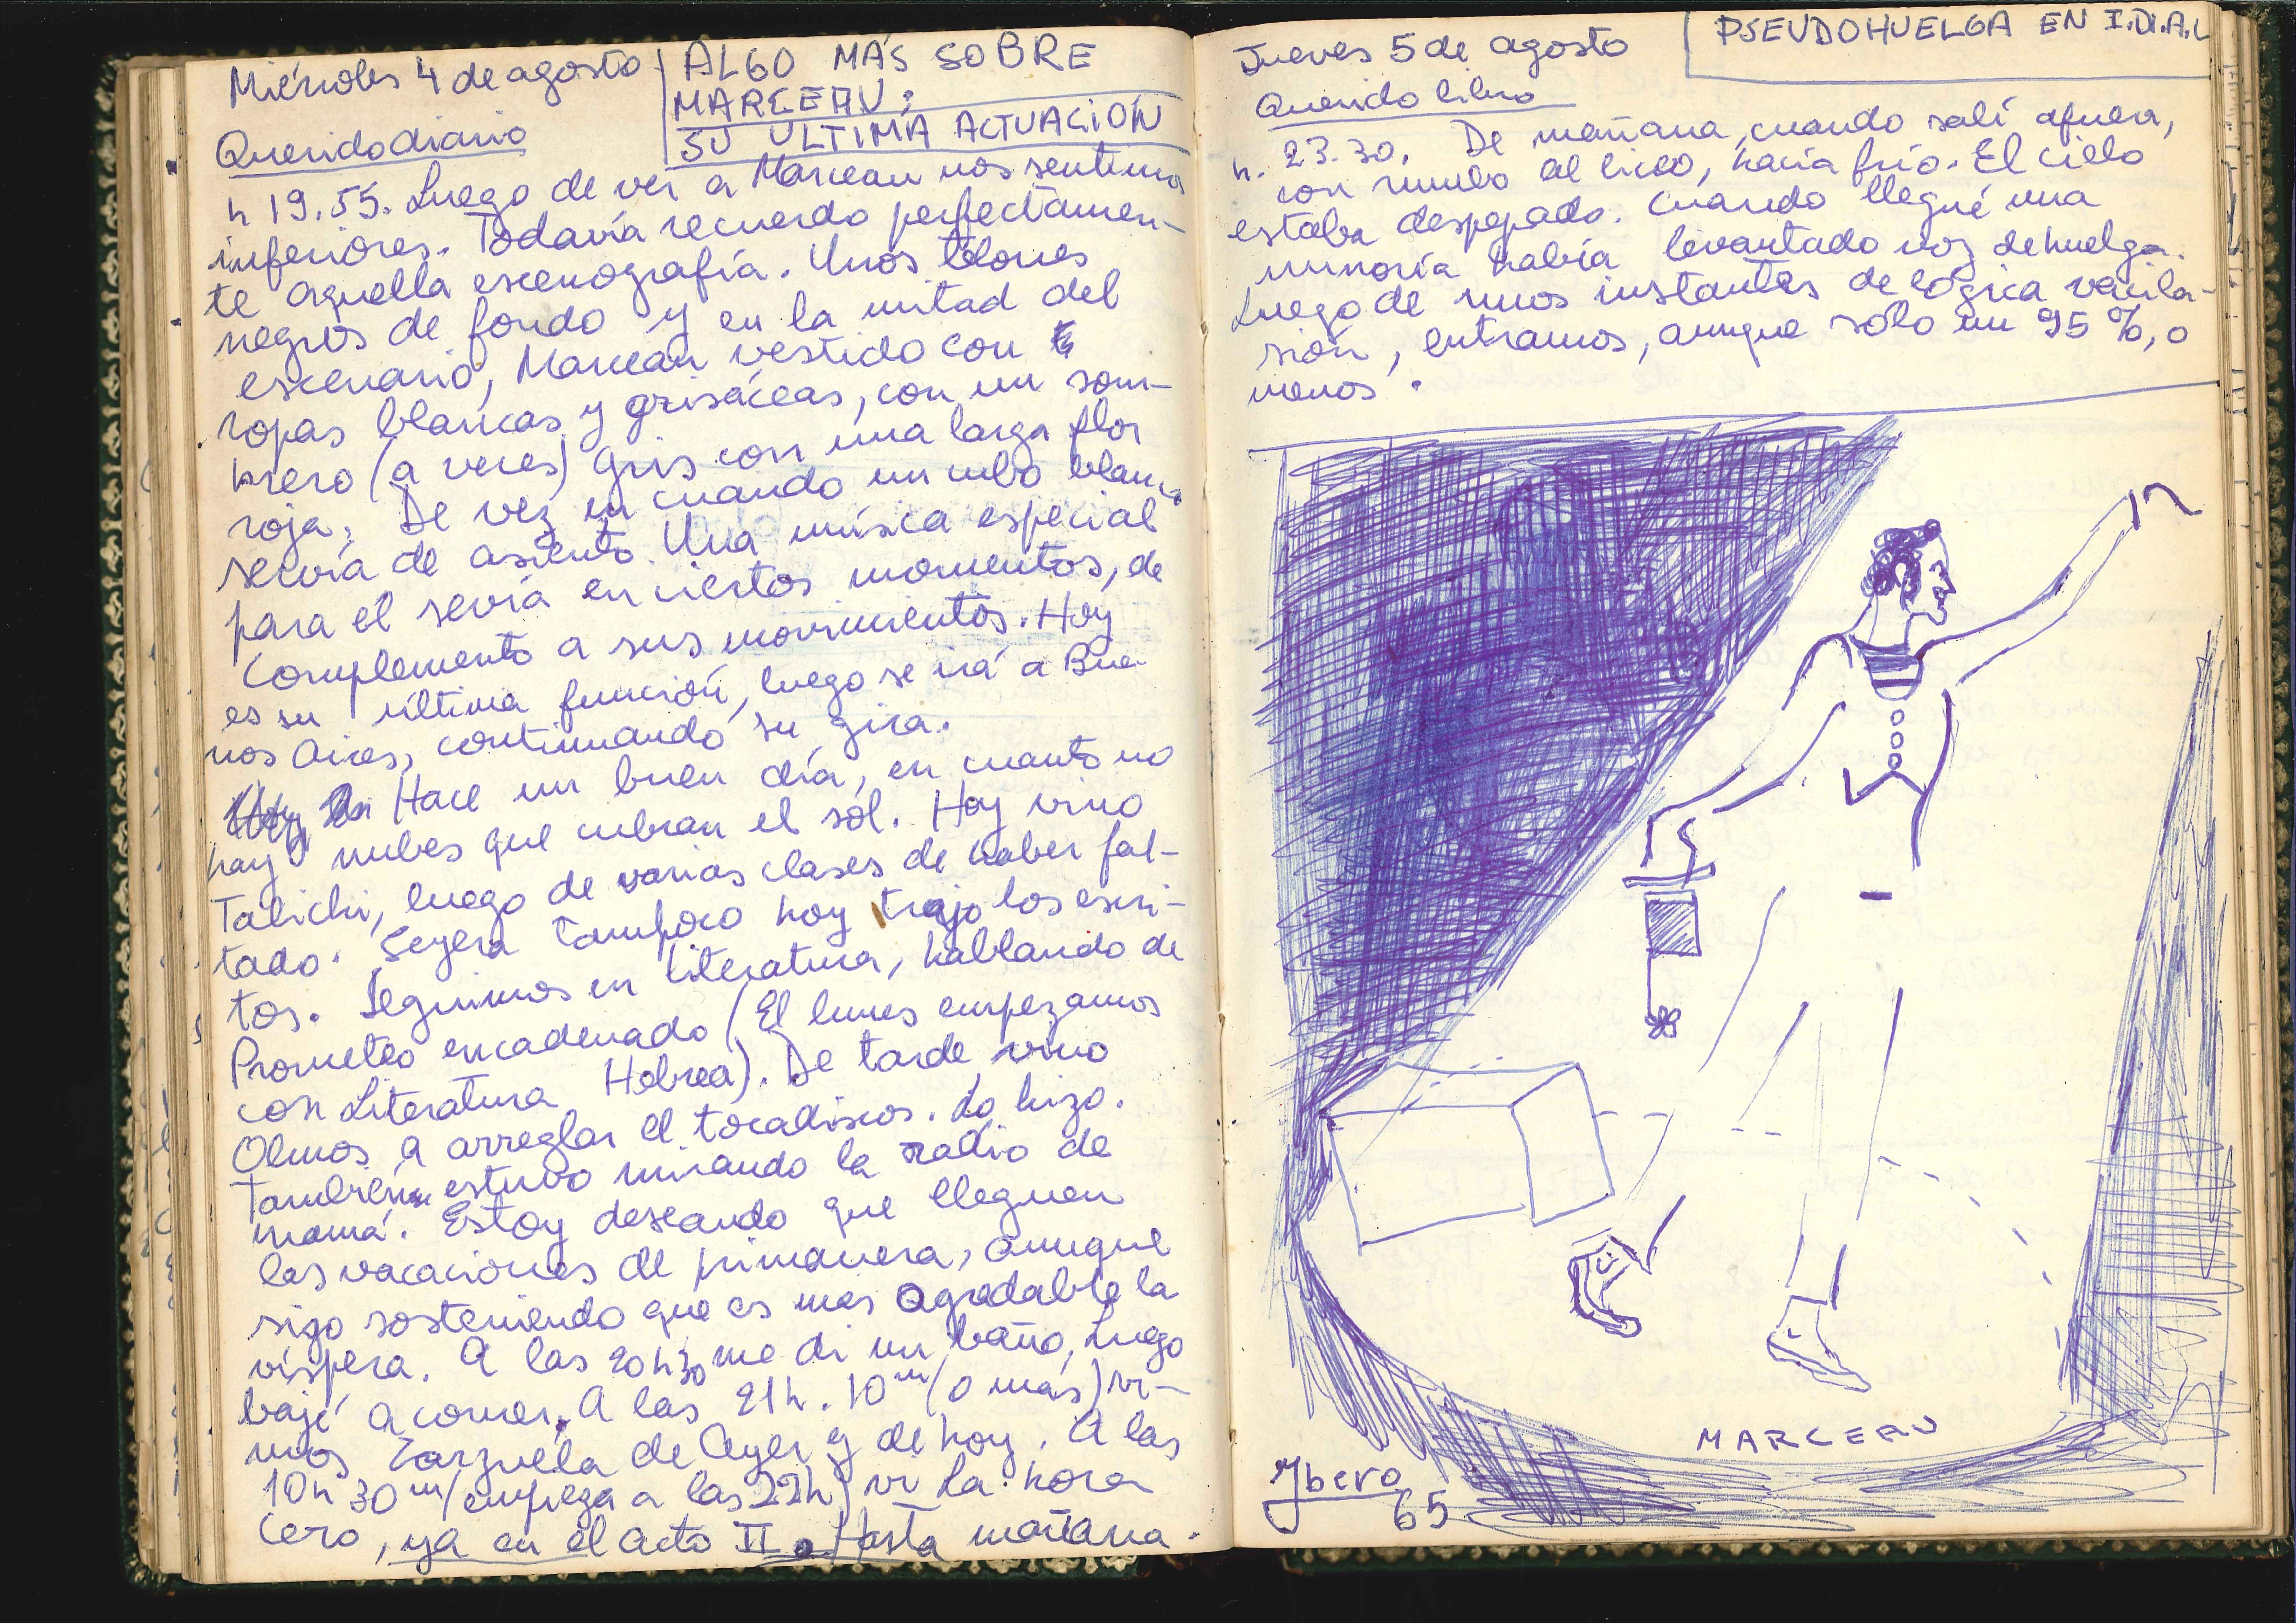 Miércoles 4 de agosto
ALGO MÁS SOBRE
MARCEAU:
SU ULTIMA ACTUACION
Querido diario
h 19.55. Luego de ver a Marceau nos sentimos
inferiores. Todavía recuerdo perfectamen-
te aquella escenografía. Unos telones
negros de fondo y en la mitad del
escenario, Marceau vestido con
ropas blancas y grisáceas, con un som-
brero (a veces) gris con una larga flor
roja. De vez en cuando un cubo blanco
servía de asiento. Una música especial
para él sevía en ciertos momentos, de
complemento a sus movimientos. Hoy
es su última función, luego se irá a Bue-
nos Aires, continuando su gira.
Hace un buen día, en cuanto no
hay nubes que cubran el sol. Hoy vino
Talichi, luego de varias clases de haber fal-
tado. Seyera tampoco hoy trajo los escri-
tos. Seguimos en Literatura, hablando de
Prometeo encadenado (El lunes empezamos
con Literatura Hebrea). De tarde vino
Olmos a arreglar el tocadiscos. Lo hizo.
También estuvo mirando la radio de
mamá. Estoy deseando que lleguen
las vacaciones de primavera, aunque
sigo sosteniendo que es mas agradable la
víspera. A las 20h30 me di un baño, Luego
bajé a comer. A las 21h. 10m (o más) vi-
mos Zarzuela de Ayer y de hoy. A las
10h 30m (empieza a las 22h) vi La hora
cero, ya en el acto II. Hasta mañana.
Jueves 5 de agosto
PSEUDOHUELGA EN I.D.A.L
Querido libro
h. 23.30. De mañana, cuando salí afuera,
con rumbo al liceo, hacía frío. El cielo
estaba despejado. Cuando llegué una
minoría había levantado voz de huelga.
Luego de unos instantes de lógica vacila-
sión, entramos, aunque sólo un 95 %, o
menos.
MARCEAU
Ybero
65